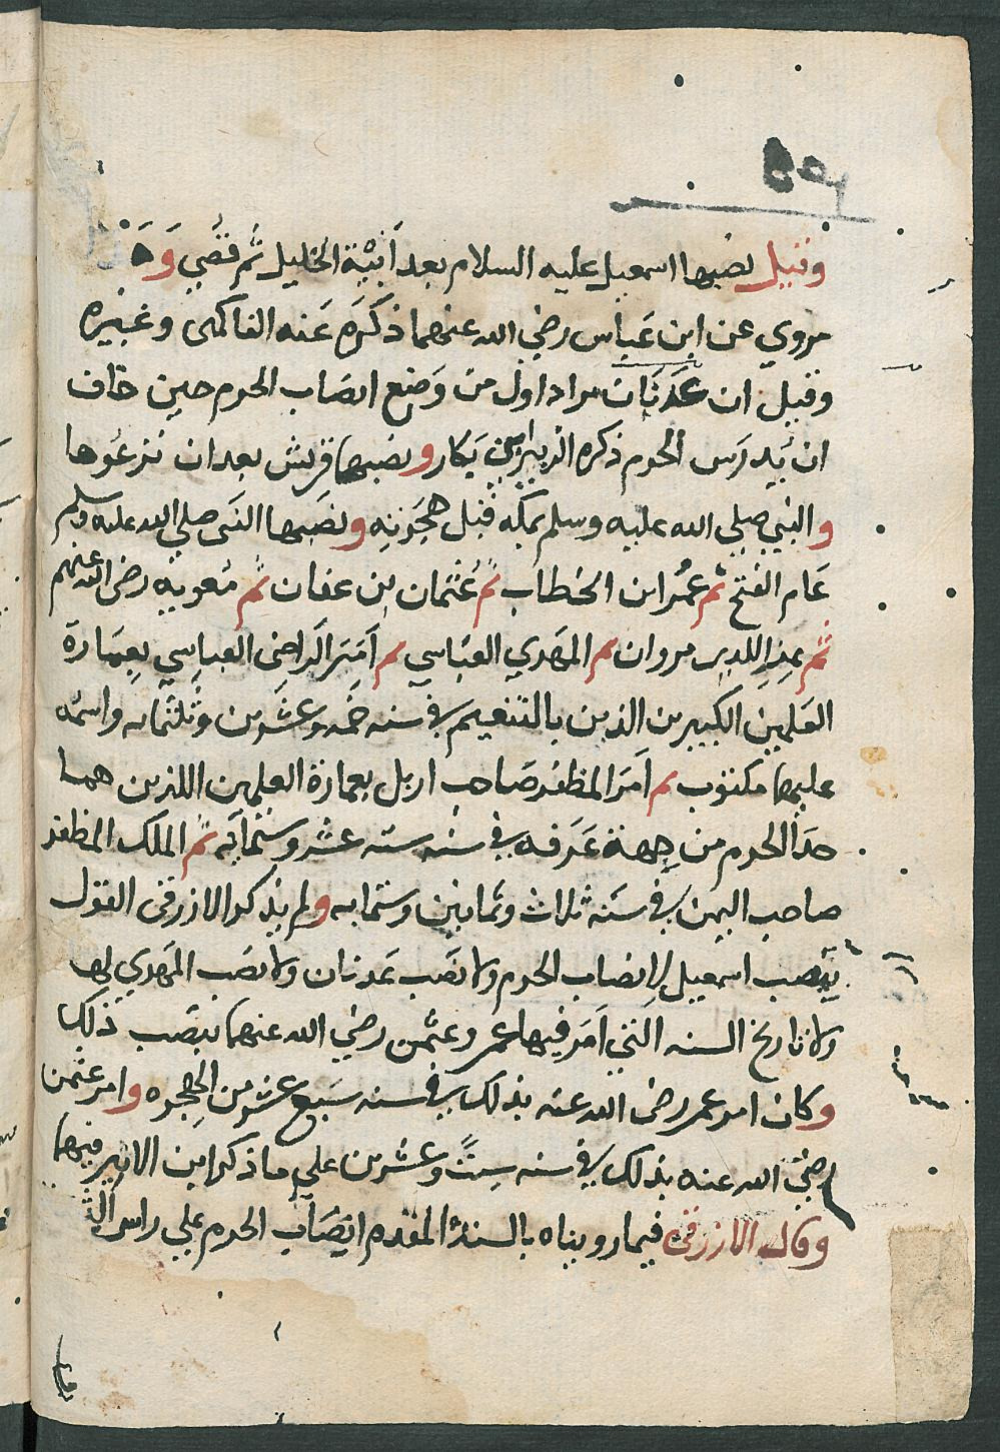 وقيل نصبها اسمعيل عليه السلام بعد ابيه الخليل ثم قصي وهو
مروي عن ابن عباس رضي الله عنهما ذكره عنه الفاكهى وغيره
وقيل ان عدنان مراد اول من وضع انصاب الحرم حين خاف
ان يدرس الحرم ذكره الزبير ابن بكار ونصبها قريش بعد ان نزعوها
والنبي صلى الله عليه وسلم بمكه قبل هجرته ونصبها النبى صلى الله عليه وسلم
عام الفتح ثم عمر ابن الخطاب ثم عثمان بن عفان ثم معوية رضى الله عنهم
ثم مروان ثم المهدي العباسي ثم امر الراضى العباسي بعمارة
العلمين الكبيرين الذين بالتنعيم في سنه خمسه وعشرين وثلثمايه واسمه
عليهما مكتوب ثم امر المظفر صاحب اربل بعمارة العلمين اللذين هما
حد الحرم من جهة عرفه في سنه سته عشر وستمايه ثم الملك المظفر
صاحب اليمن في سنه ثلاث وثمانين وستمايه ولم يذكر الازرقى القول
بنصب اسمعيل لانصاب الحرم ولا نصب عدنان ولا نصب المهدي لها
ولا تاريخ السنه التي امر فيها عمر وعثمن رضي الله عنهما بنصب ذلك
وكان امر عمر رضى الله عنه بذلك في سنه سبع عشر من الهجره وامر عثمن
رضي الله عنه بذلك في سنه ست وعشرين على ما ذكر ابن الاثير فيهما
وقال الازرقى فيما رويناه بالسند المقدم انصاب الحرم على راس